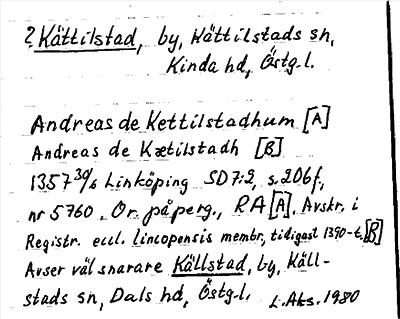 ? Kättilstad, by, Kättilstads sn,
Kinda hd, Östg.l.
Andreas de Kettilstadhum [A]
Andreas de Kætilstadh [B]
1357 30/6 Linköping SD7:2, s.206f,
nr 5760. Or. på perg., RA [A]. Avskr. i
Registr. eccl. lincopensis membr, tidigast 1390-t. [B]
Avser väl snarare Källstad, by, Käll-
stads sn, Dals hd, Östg.l. L.Aks. 1980